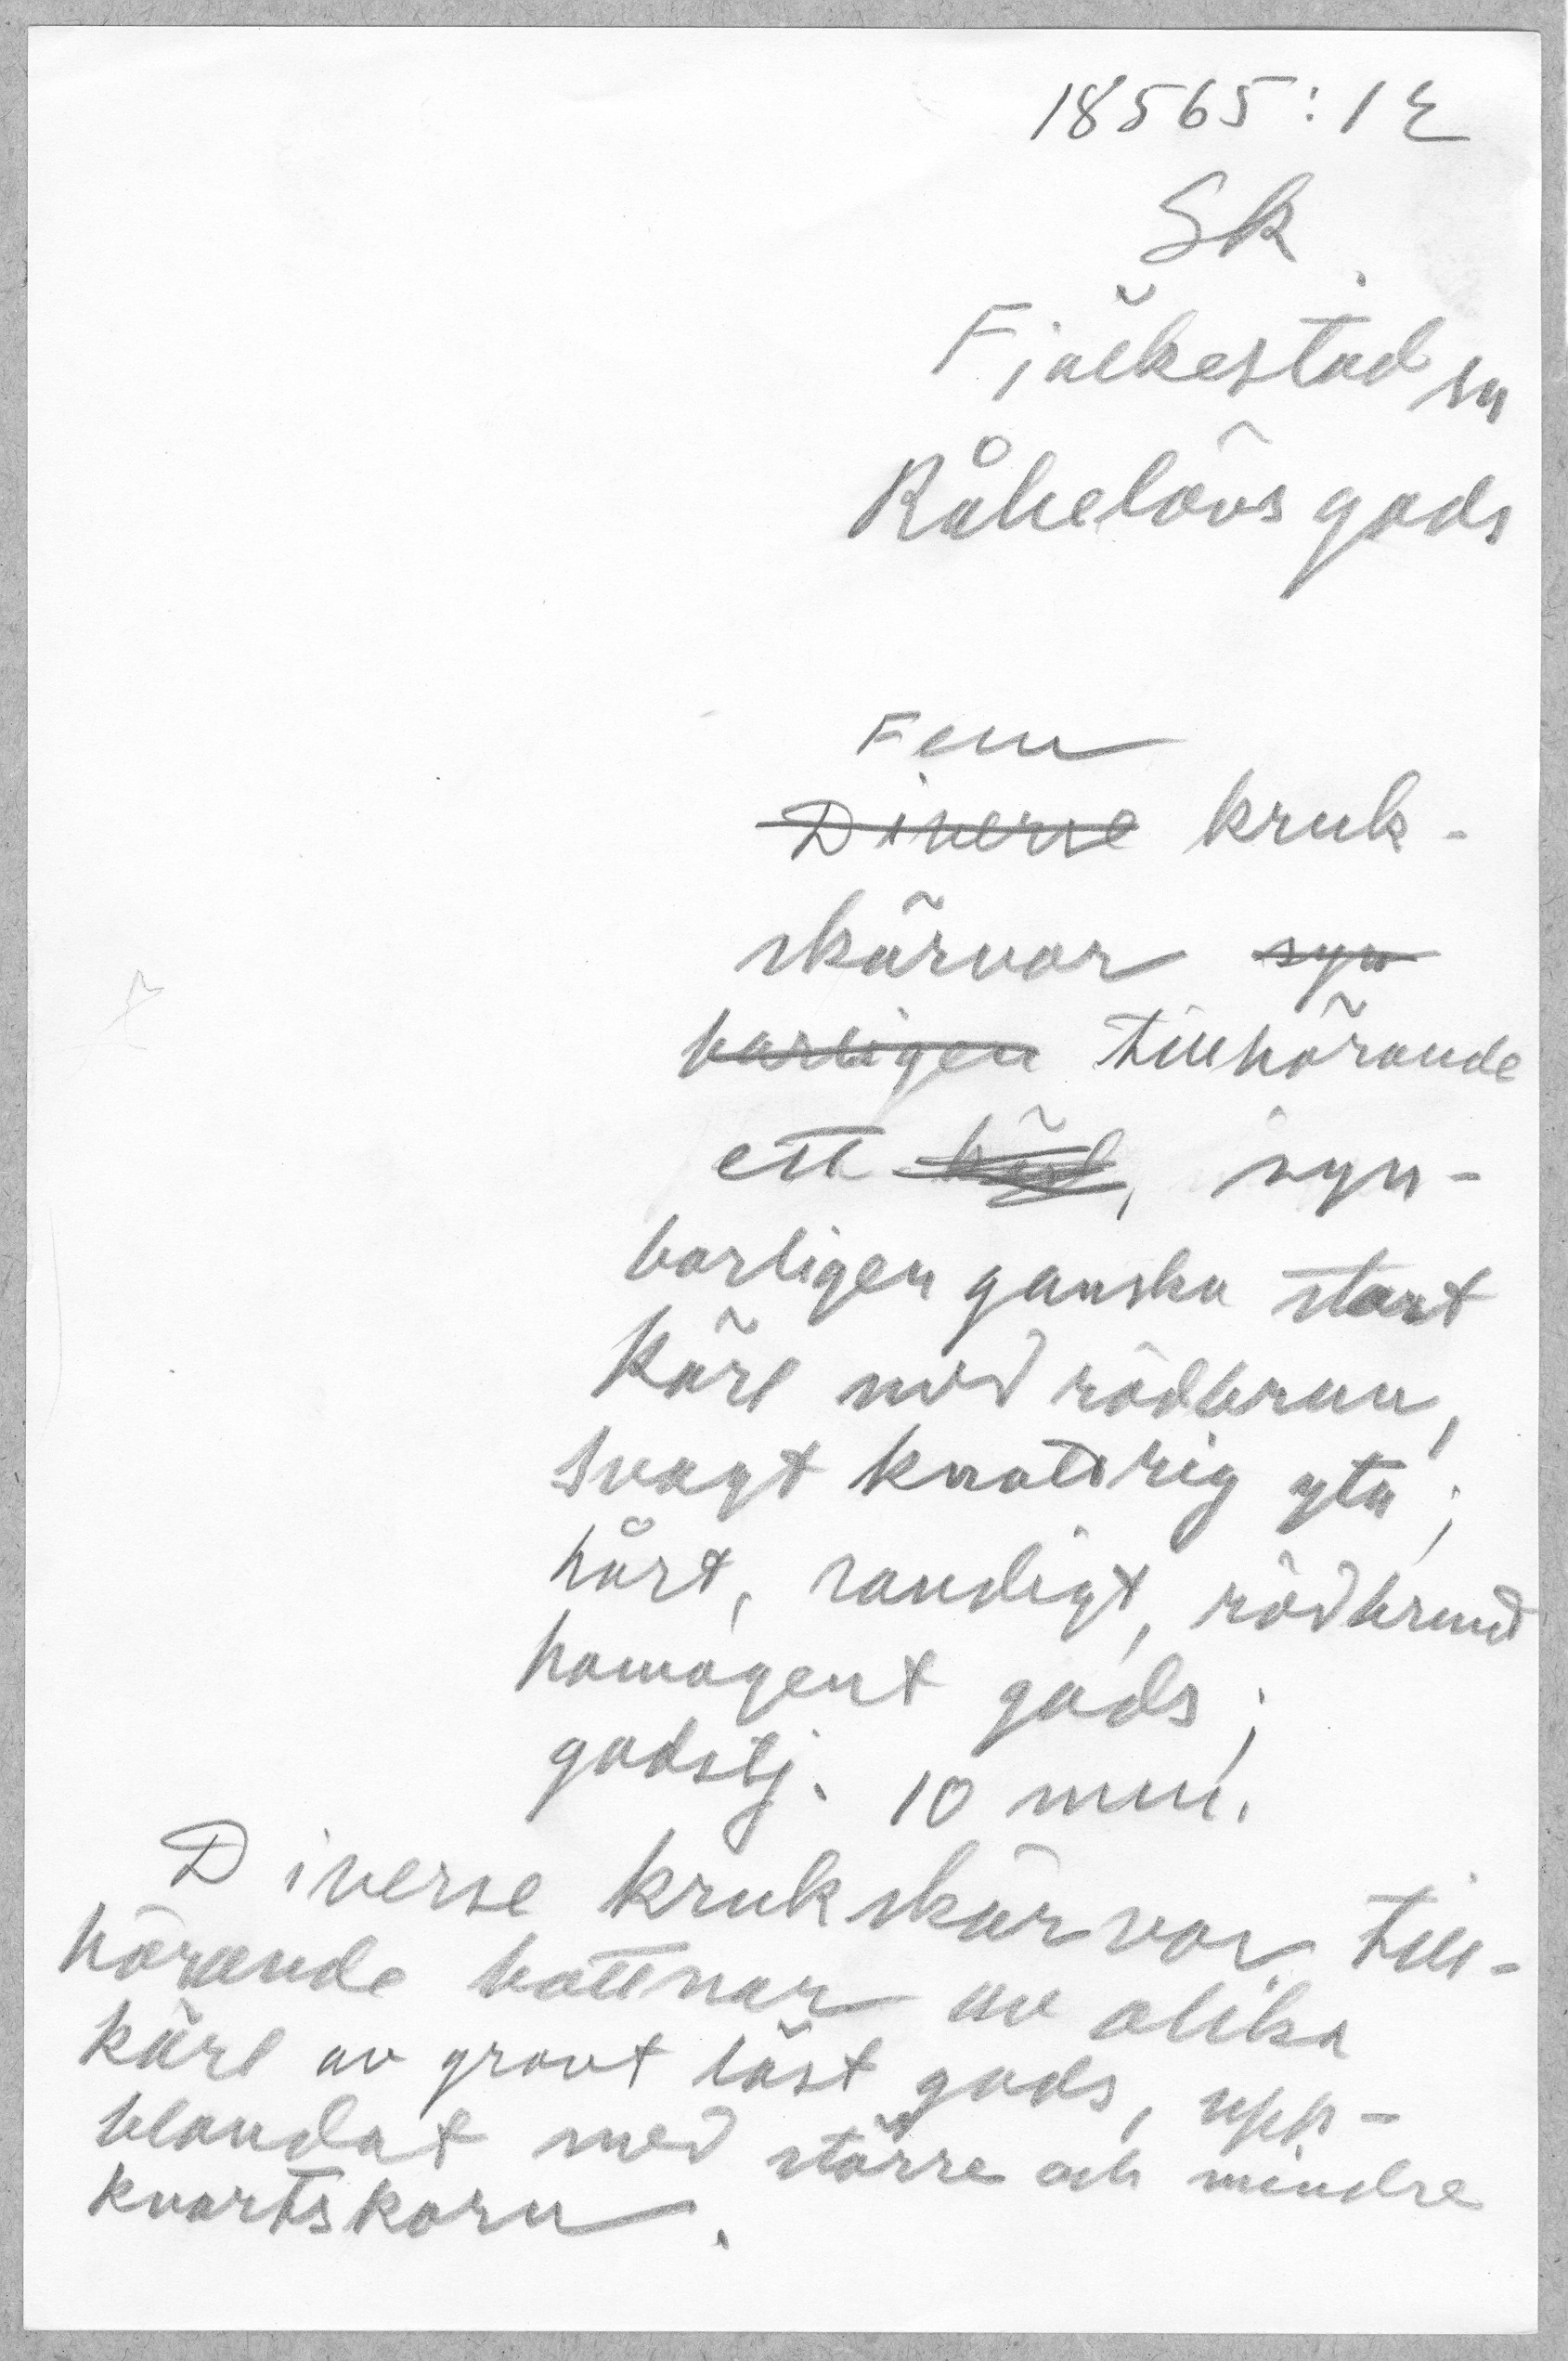 18565:1 ε
Sk
Fjälkestad sn
Råbelövs gods
Fem
Diverse kruk-
skärvor syn
barligen tillhörande
ett kärl, syn-
barligen ganska stort
kärl med rödbrun,
svagt knottrig yta;
hårt, sandigt, rödbrunt
homogent gods;
godstj. 10 mm.
Diverse krukskärvor till-
hörande bottnar av olika
kärl av grovt löst gods, upp-
blandat med större och mindre
kvartskorn.